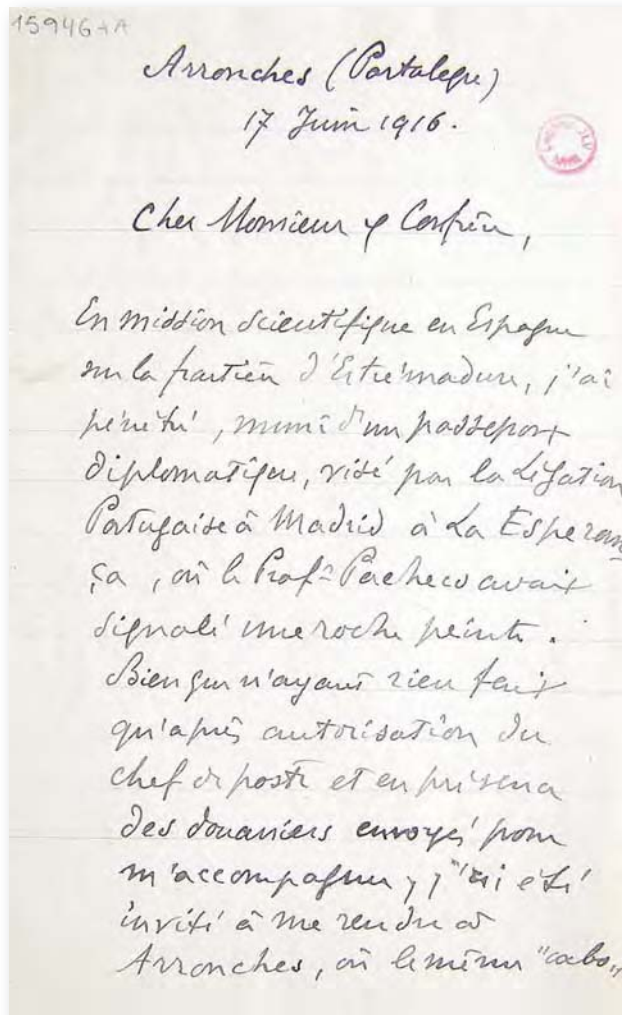 15946-A
Arronches (Portalegre)
17 Juin 1916.
Cher Monsieur & Confrère,
En mission scientifique en Espagne
sur la frontière d'Estrémadure, j'ai
pénétré, muni d'un passeport
diplomatique, visé par la Légation
Portugaise à Madrid à La Esperan
ça, où le Prof. Pacheco avait
signalé une roche peinte.
Bien que n'ayant rien fait
qu'après autorisation du
chef de poste et en présence
des douaniers envoyés pour
m'accompagner, j'ai été
invité à me rendre à
Arronches, où le même "cabo"